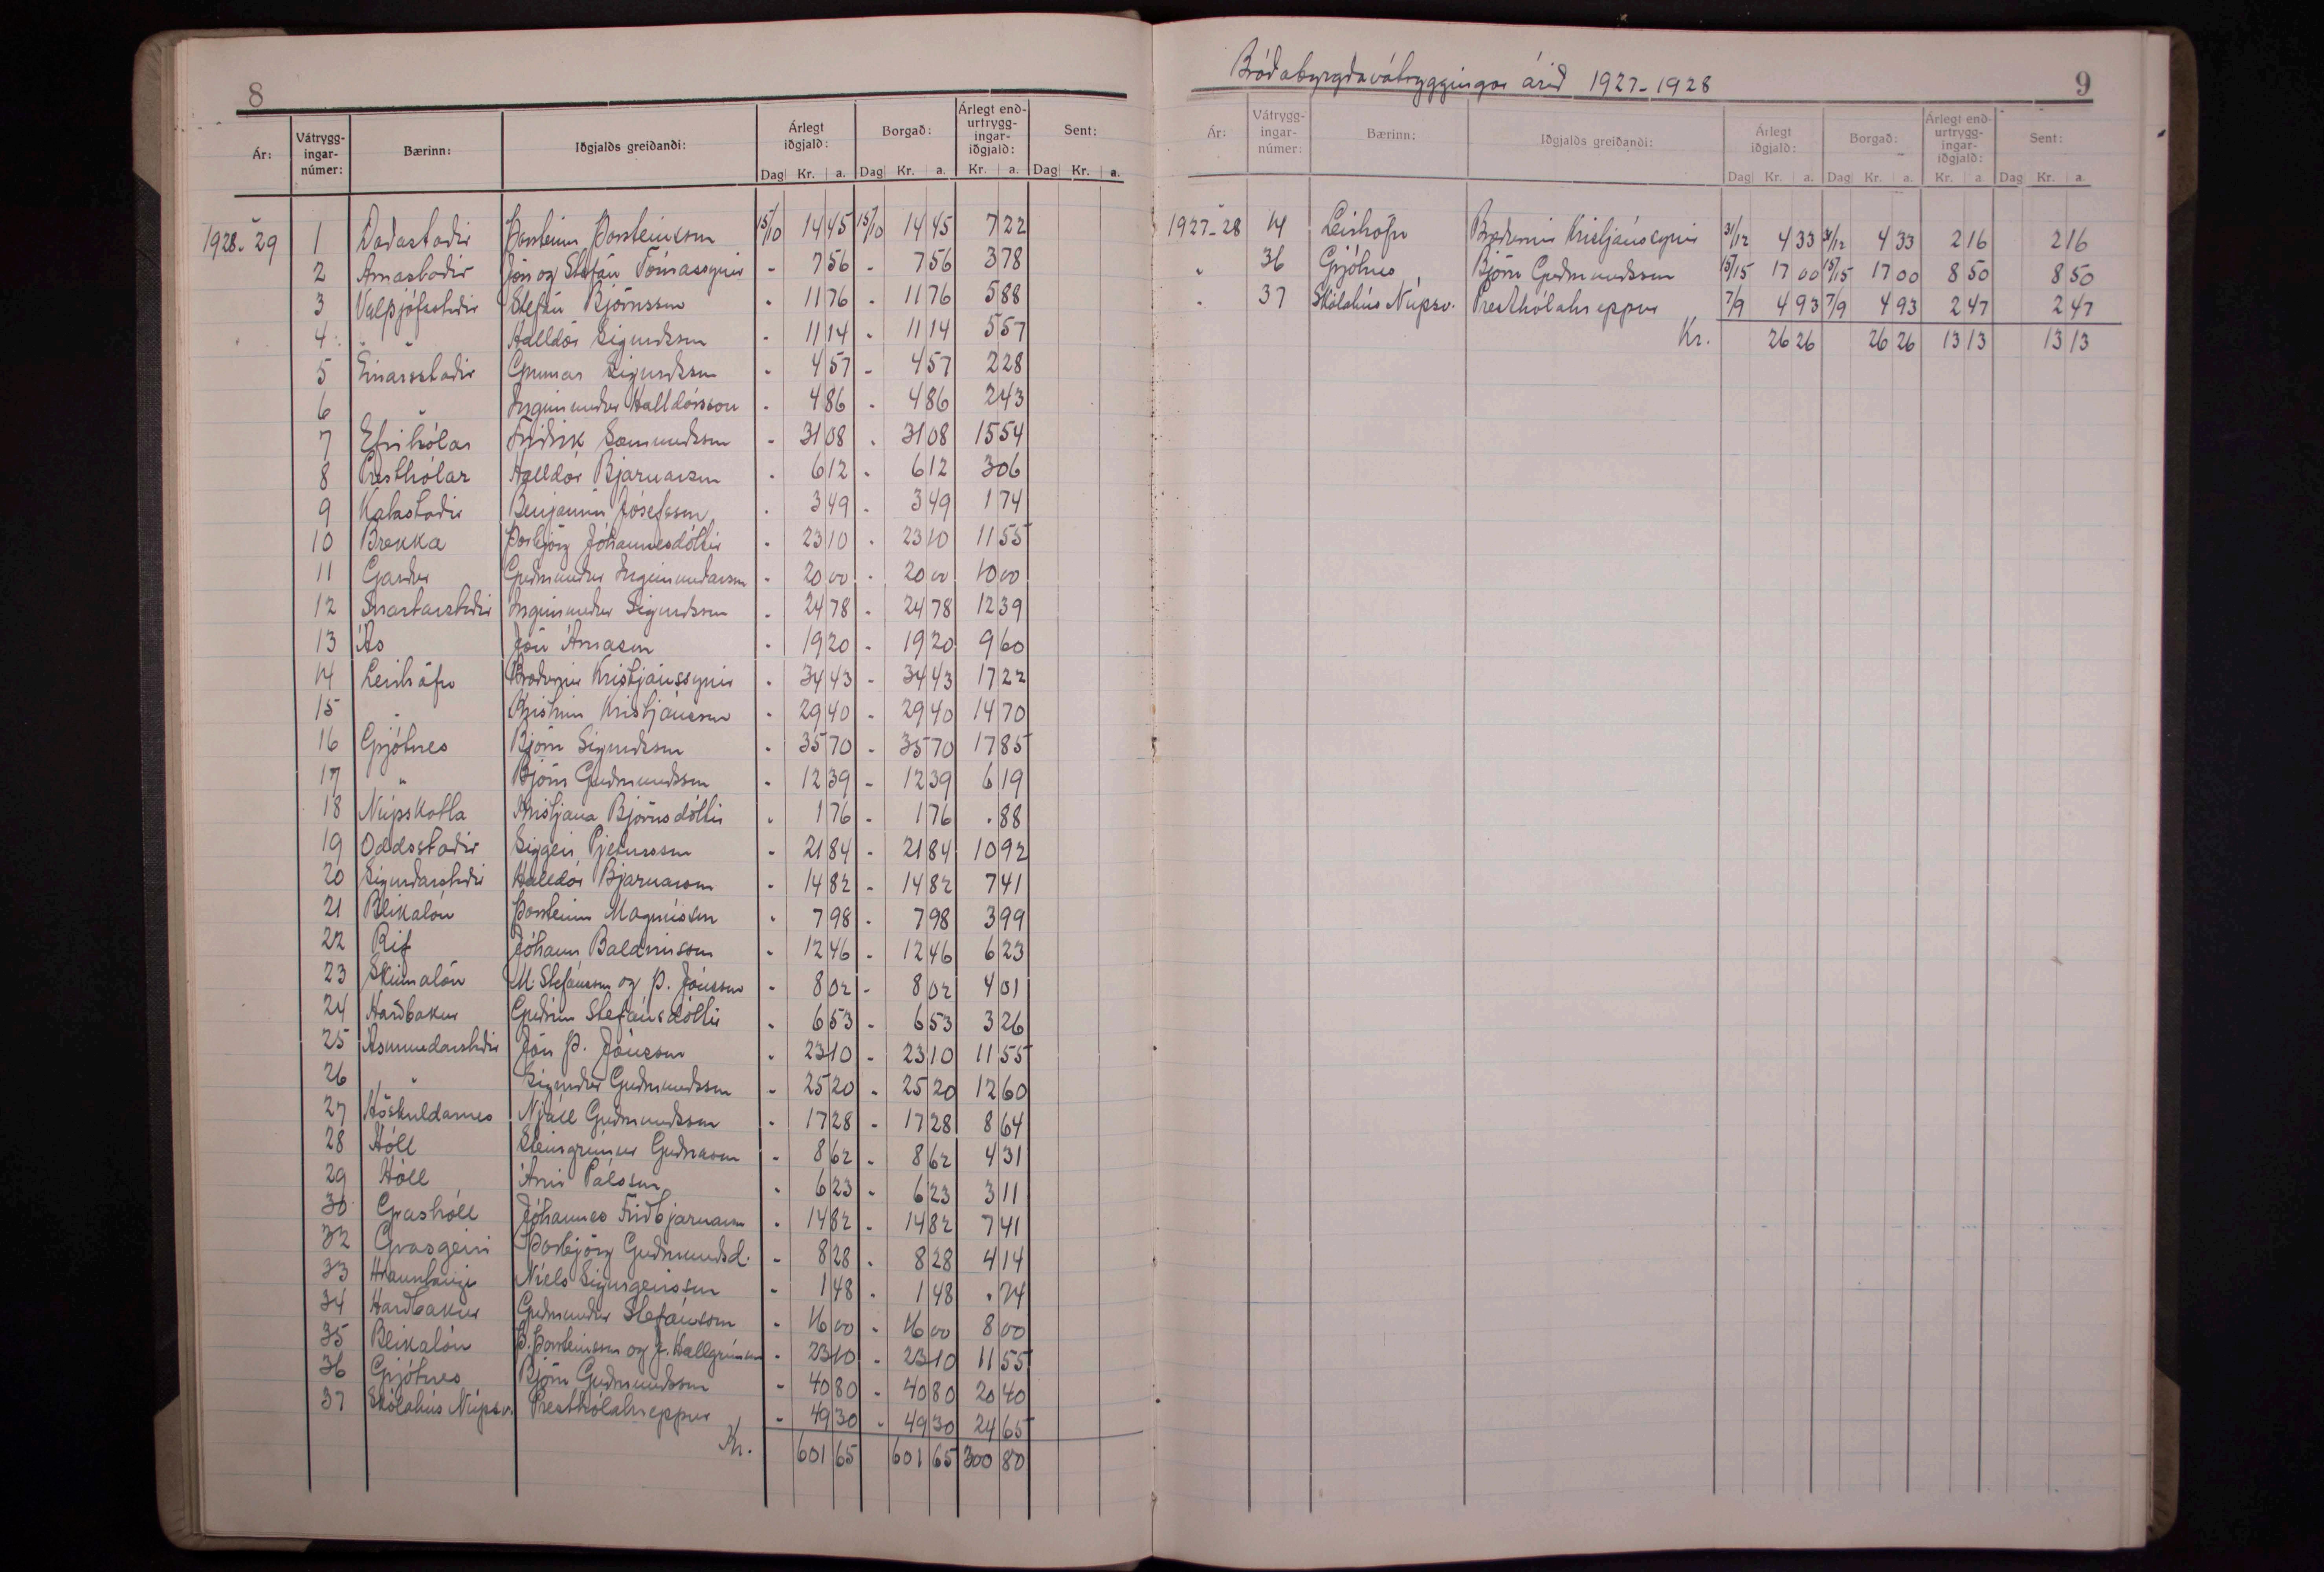 8
Ár: Vátryggingar-númer: Bærinn: Iðgjalds greiðandi: Árlegt iðgjald: Borgað: Árlegt endurtryggingar-iðgjald: Sent:
Dag Kr. a. Dag Kr. a. Kr. a. Dag Kr. a.
1928-29 1 Daðastaðir Þorsteinn Þorsteinsson 15/10 14 45 15/10 14 45 7 22
2 Arnastaðir Jón og Stefán Tómassynir - 7 56 - 7 56 3 78
3 Valþjófsstaðir Stefán Björnsson - 11 76 - 11 76 5 88
4 " " Halldór Sigurðsson - 11 14 - 11 14 5 57
5 Einarsstaðir Gunnar Sigurðsson - 4 57 - 4 57 2 28
6 " Ingimundur Halldórsson - 4 86 - 4 86 2 43
7 Efrihólar Friðrik Sæmundsson - 31 08 - 31 08 15 54
8 Presthólar Halldór Bjarnarson - 6 12 - 6 12 3 06
9 Katastaðir Benjamín Jósefsson - 3 49 - 3 49 1 74
10 Brekka Þorbjörg Jóhannesdóttir - 23 10 - 23 10 11 55
11 Garður Guðmundur Ingimundarson - 20 00 - 20 00 10 00
12 Snartarstaðir Ingimundur Sigurðsson - 24 78 - 24 78 12 39
13 Ás Jón Árnason - 19 20 - 19 20 9 60
14 Leirhöfn Bræðurnir Kristjánssynir - 34 43 - 34 43 17 22
15 " Kristinn Kristjánsson - 29 40 - 29 40 14 70
16 Grjótnes Björn Sigurðsson - 35 70 - 35 70 17 85
17 " Björn Guðmundsson - 12 39 - 12 39 6 19
18 Núpskatla Kristjana Björnsdóttir - 1 76 - 1 76 . 88
19 Oddsstaðir Siggeir Pjetursson - 21 84 - 21 84 10 92
20 Sigurðarstaðir Halldór Bjarnarson - 14 82 - 14 82 7 41
21 Blikalón Þorsteinn Magnússon - 7 98 - 7 98 3 99
22 Rif Jóhann Baldvinsson - 12 46 - 12 46 6 23
23 Skinnalón M. Stefánsson og Þ. Jónsson - 8 02 - 8 02 4 01
24 Harðbakur Guðrún Stefánsdóttir - 6 53 - 6 53 3 26
25 Ásmundarstaðir Jón Þ. Jónsson - 23 10 - 23 10 11 55
26 " Sigurður Guðmundsson - 25 20 - 25 20 12 60
27 Höskuldarnes Njáll Guðmundsson - 17 28 - 17 28 8 64
28 Hóll Steingrímur Guðnason - 8 62 - 8 62 4 31
29 Hóll Árni Pálsson - 6 23 - 6 23 3 11
30 Grashóll Jóhannes Friðbjarnarson - 14 82 - 14 82 7 41
32 Grasgeiri Þorbjörg Guðmundsd. - 8 28 - 8 28 4 14
33 Hrauntangi Níels Sigurgeirsson - 1 48 - 1 48 . 74
34 Harðbakur Guðmundur Stefánsson - 16 00 - 16 00 8 00
35 Blikalón Þ. Þorsteinsson og J. Hallgrímsson - 23 10 - 23 10 11 55
36 Grjótnes Björn Guðmundsson - 40 80 - 40 80 20 40
37 Skólahús Núpsv. Presthólahreppur - 49 30 - 49 30 24 65
Kr. 601 65 601 65 300 80
Bráðabyrgðavátryggingar árið 1927-1928
9
Ár: Vátryggingar-númer: Bærinn: Iðgjalds greiðandi: Árlegt iðgjald: Borgað: Árlegt endurtryggingar-iðgjald: Sent:
Dag Kr. a. Dag Kr. a. Kr. a Dag Kr. a.
1927-28 14 Leirhöfn Bræðurnir Kristjánssynir 31/12 4 33 31/12 4 33 2 16 2 16
" 36 Grjótnes Björn Guðmundsson 15/15 17 00 15/15 17 00 8 50 8 50
" 37 Skólahús Núpsv. Presthólahreppur 7/9 4 93 7/9 4 93 2 47 2 47
Kr. 26 26 26 26 13 13 13 13